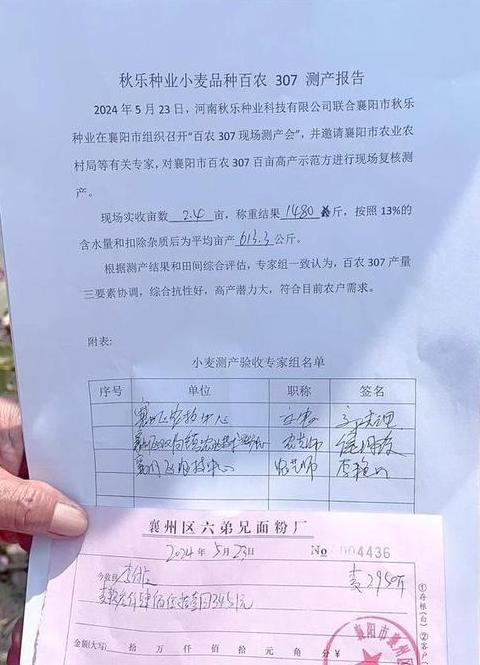 秋乐种业小麦品种百农 307 测产报告
2024 年 5 月 23 日，河南秋乐种业科技有限公司联合襄阳市秋乐
种业在襄阳市组织召开“百农 307 现场测产会”，并邀请襄阳市农业农
村局等有关专家，对襄阳市百农 307 百亩高产示范方进行现场复核测
产。
现场实收亩数 2.4 亩，称重结果 1480 斤，按照 13%的
含水量和扣除杂质后为平均亩产 613.3 公斤。
根据测产结果和田间综合评估，专家组一致认为，百农 307 产量
三要素协调，综合抗性好，高产潜力大，符合目前农户需求。
附表：
小麦测产验收专家组名单
序号 单位 职称 签名
中心
农艺师
襄州区农技中心 农艺师
襄州区六弟兄面粉厂
2024 年 5 月 23 日 No 004436
今收到 麦2950斤
345 元
金额(大写) 拾 万 仟 佰 拾 元 角 分 ¥
①存根(白) ②客户
襄阳市襄州